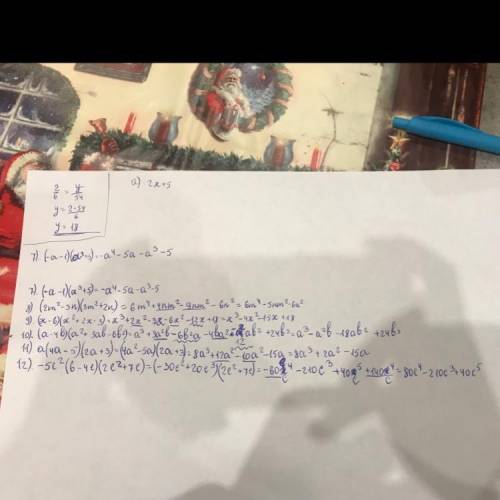 2/6 = y/54
a) 2x+5
y = 2·54/6
y = 18
7). (-a-1)(a³+5)=-a⁴-5a-a³-5
7). (-a-1)(a³+5)=-a⁴-5a-a³-5
8) (2m²-3n)(3m²+2n) = 6m⁴+4nm²-9nm²-6n²=6m⁴-5nm²-6n²
9) (x-6)(x²+2x-3)=x³+2x²-3x-6x²-12x+18=x³-4x²-15x+18
10). (a-4b)(a²+3ab-6b²)=a³+3a²b-6b²a-4ba²-12ab²+24b³=a³-a²b-18ab²+24b³
11) a(4a-5)(2a+3)=(4a²-5a)(2a+3)=8a³+12a²-10a²-15a=8a³+2a²-15a
12) -5c²(6-4c)(2c²+7c)=(-30c²+20c³)(2c²+7c)=-60c⁴-210c³+40c⁵+140c⁴=80c⁴-210c³+40c⁵